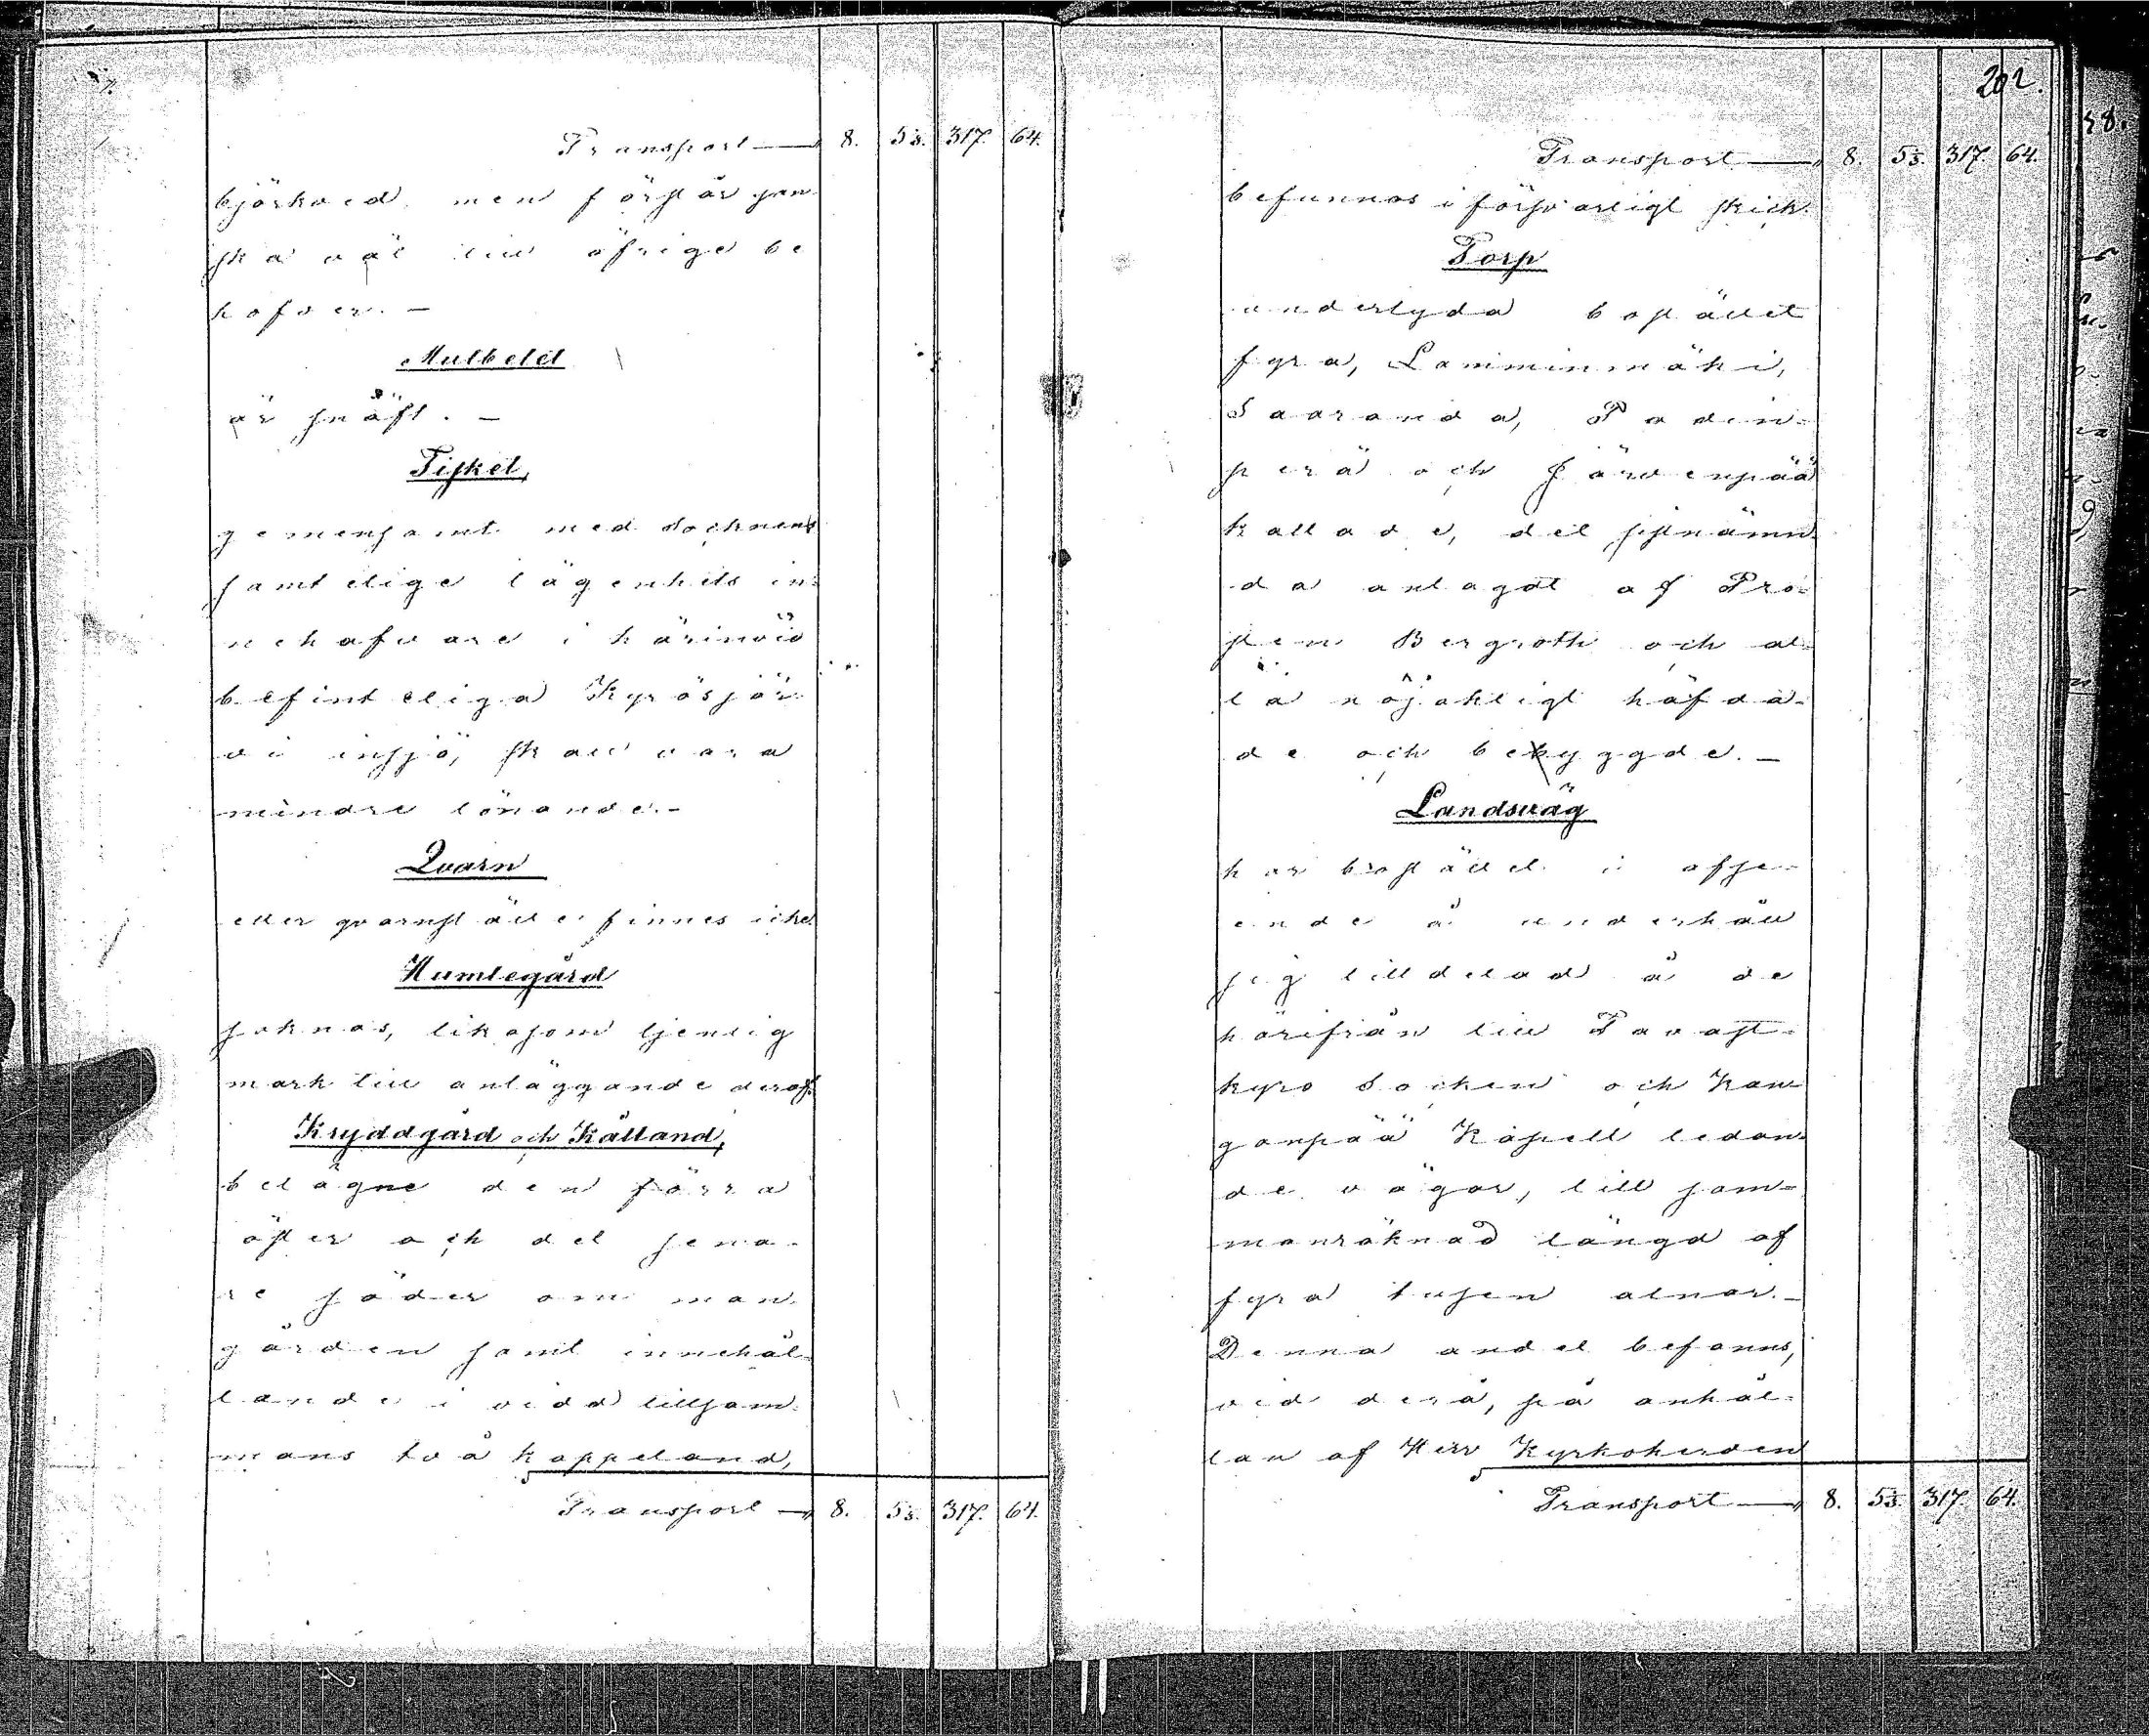 Transport — 8. 5⅓. 317. 64.
björkved, men förslår gan-
ska väl till öfrige be
hofver. —
Mulbetet
är snäft. —
Fisket,
gemensamt med Socknens
samtelige lägenhets in-
nehafvare i härinvid
befinteliga Kyrösjär-
vi insjö, skall vara
mindre lönande. —
Qvarn
eller qvarnställe finnes icke.
Humlegård
saknas, likasom tjenlig
mark till anläggande deraf.
Kryddgård och Kålland,
belägne den förra
öster och det sena-
re söder om man-
gården samt innehål-
lande i vidd tillsam-
mans två kappeland,
Transport — 8. 5⅓. 317. 64.
202.
Transport — 8. 5⅓. 317. 64.
befunnos i försvarligt skick.
Torp
underlyda bostället
fyra, Lamminmäki,
Saaranda, Paden-
perä och Järvenpää
kallade, det sistnämn-
da anlagdt af Pro-
sten Bergroth och al-
la nöjaktigt häfda-
de och bebyggde. —
Landsväg
har bostället i afse-
ende å underhåll
sig tilldelad å de
härifrån till Tavast-
kyro Socken och Kan-
ganpää Kapell ledan-
de vägar, till sam-
manräknad längd af
fyra tusen alnar. —
Denna andel befanns,
vid derå, på anhål-
lan af Herr Kyrkoherden
Transport — 8. 5⅓. 317. 64.